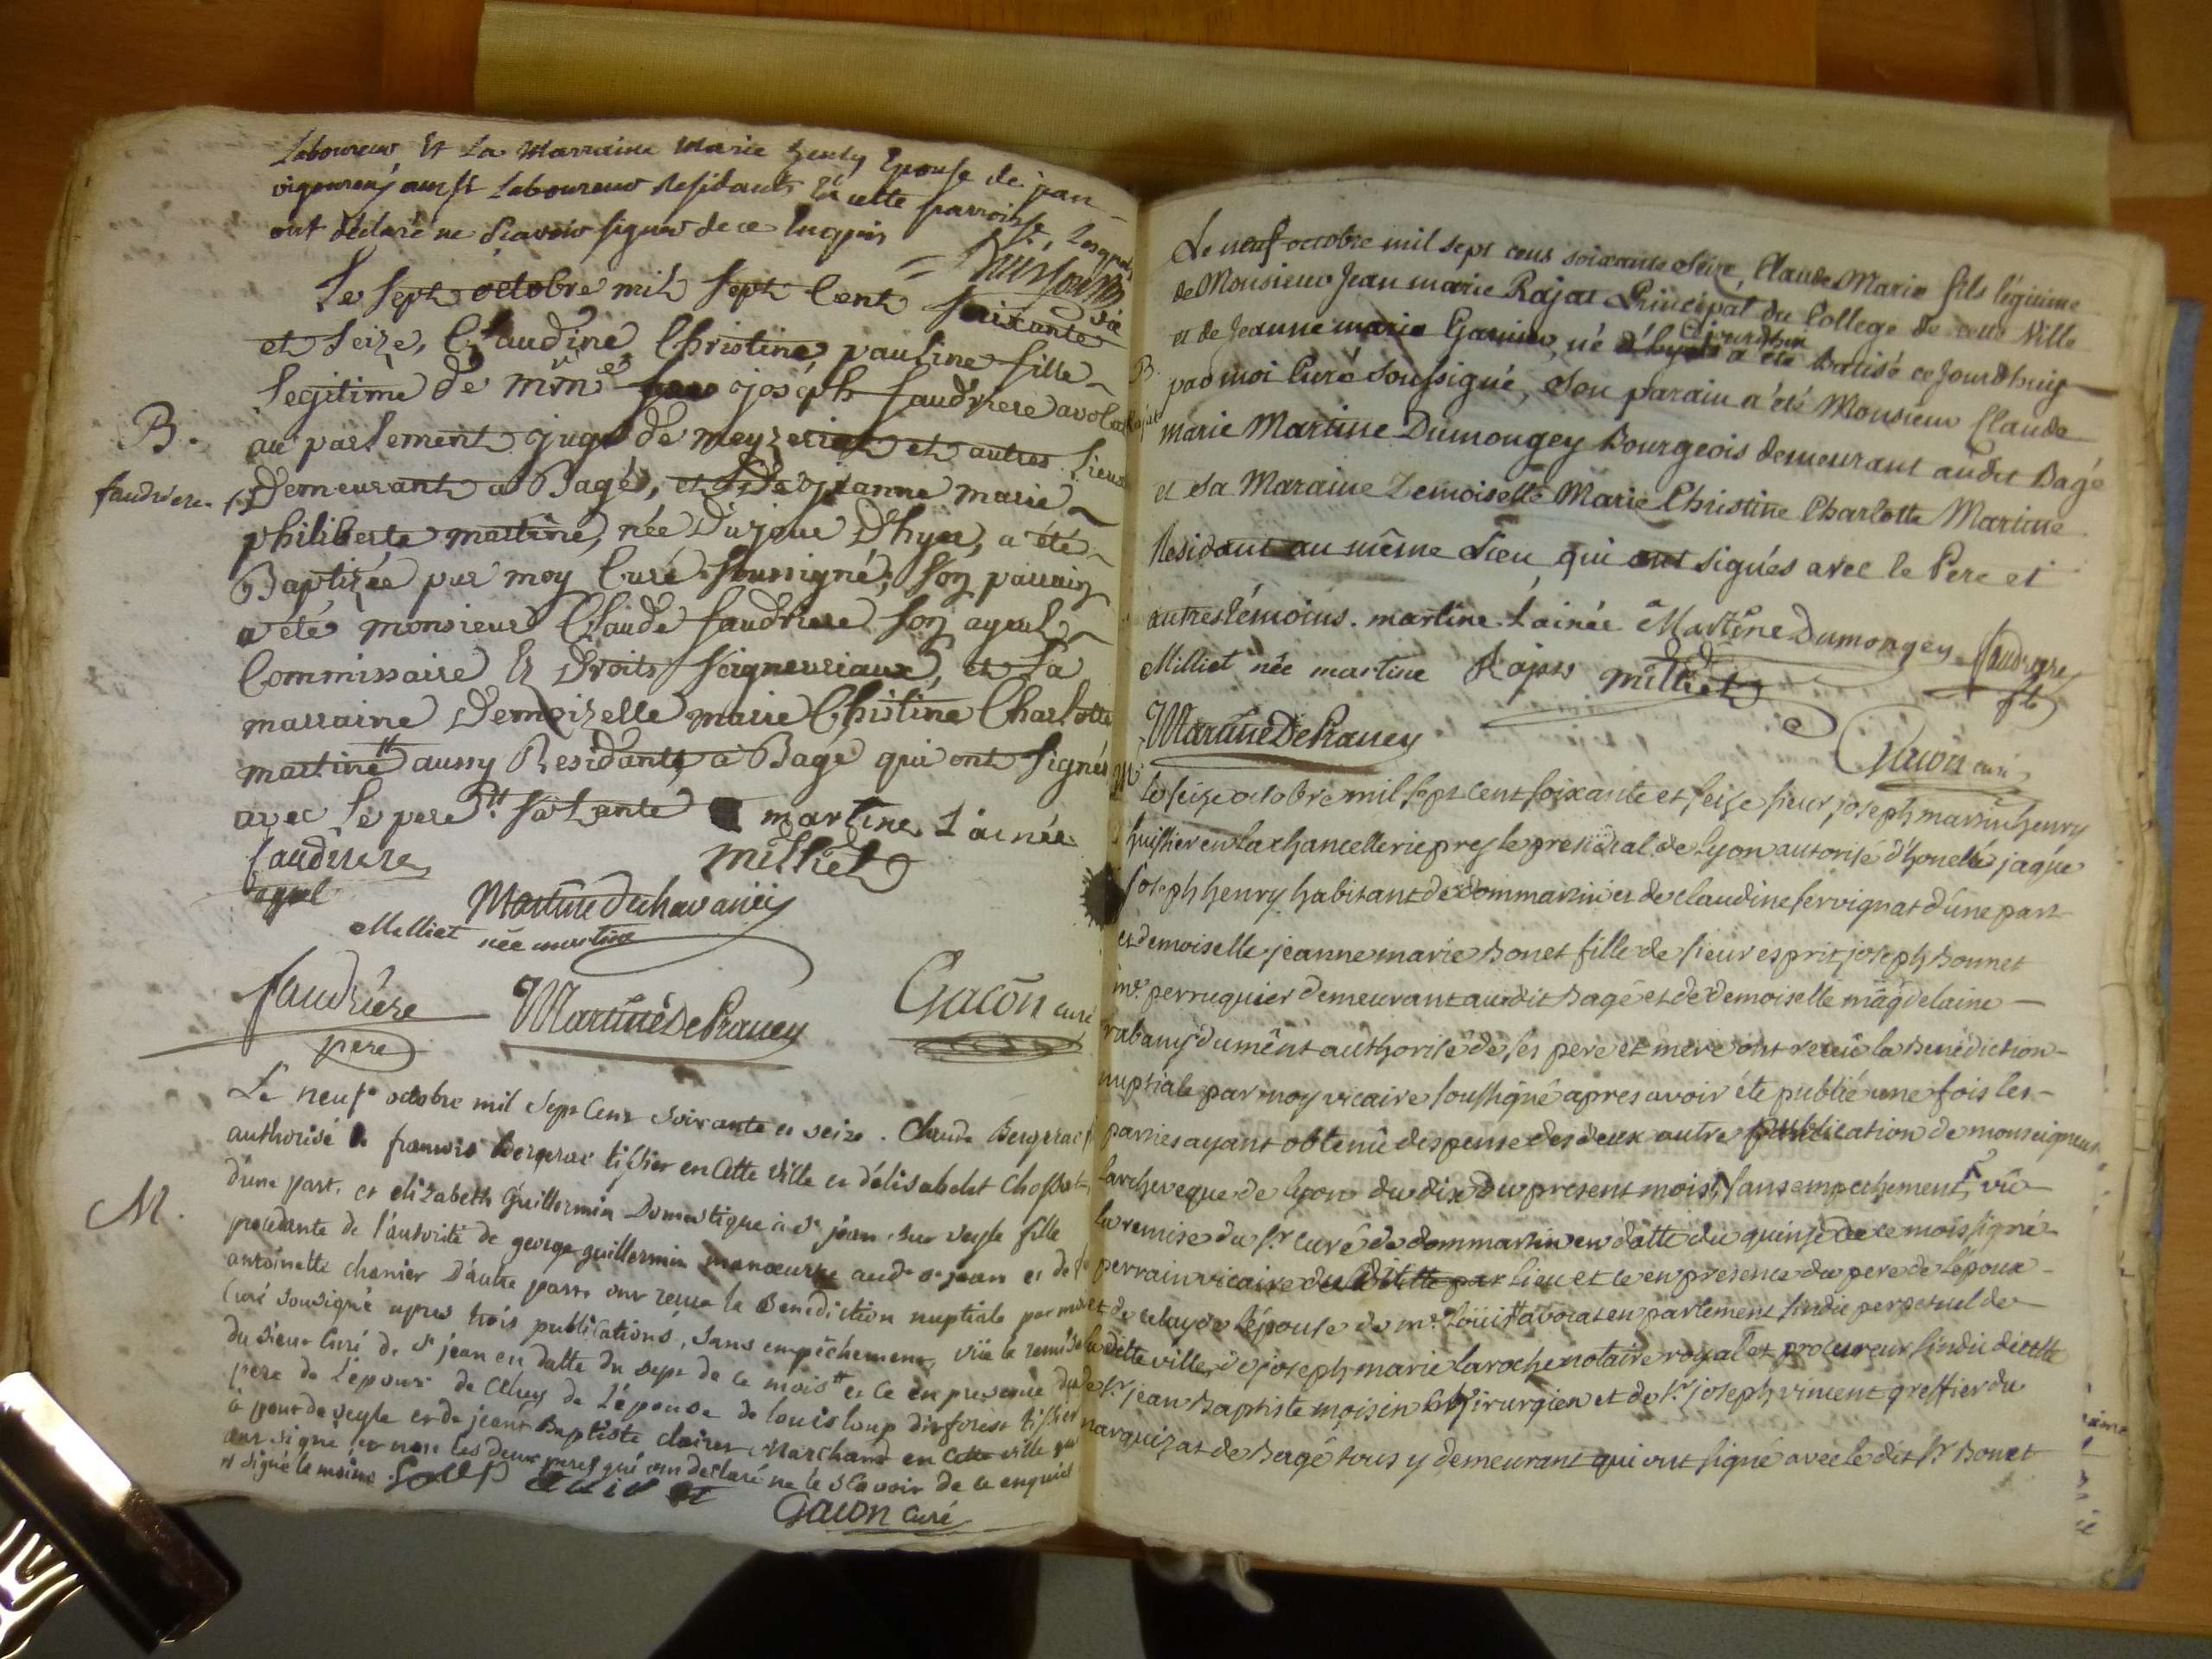 Laboureur Et La Marraine Marie Epouse de jean
vigoureuj aussi Laboureur Residants En cette parroisse, Lesquels
ont déclaré ne Sçavoir signer de ce Enquis
Le sept octobre mil sept Cent soixante
et seize, Claudine Christine pauline fille
Legitime de joséph faudriere avocat
au parlement juge de meyzeriat et autres Lieux
B.
faudriere.
Demeurant a Bagé, et de D.e jeanne marie
philiberte martine, née Du jour D'hyer, a été
Baptizée par moy Curé soussigné, son parrain
a été monsieur Claude faudriere son ayeul
Commissaire Es Droits seigneuriaux, et La
marraine Demoizelle marie Christine Charlotte
martine aussy Residante a Bagé qui ont signés
avec Le pere et sa tante martine L'ainée
faudriere
ayeul
milliet
Martine Duchavaney
Milliet née martine
faudriere
pere
Martine De Praney
Gacon curé
Le neuf octobre mil sept Cent soixante et seize. Claude Bergerac
authorisé de francois Bergerac tissier en Cette Ville et d'élisabeht Chossat
d'une part, et elizabeth Guillermin Domestique à St jean sur veyle fille
M.
procedante de l'autorité de george guillermin manoeuvre aud. St jean et de
antoinette chanier D'autre part ont reçue la Benediction nuptiale par moi
Curé sousigné apres trois publications, sans empêchement, vüe la remise
du sieur Curé de St jean en datte du sept de ce mois et ce en presence du
pere de L'epoux de Celuy de L'épouse de louis loup disforest tissier
à pont de veyle et de jean Baptiste clairet Marchand en Cette ville qui
ont signé et non les deux peres qui ont declaré ne le sçavoir de ce enquis
et signé le moins
Gacon curé
Le neuf octobre mil sept cens soixante Seize, Claude Marie fils légitime
de Monsieur Jean marie Rajat Principal du College de cette Ville
et de Jeanne marie Garnier, né aujourdhui a été Batisé ce Jourdhuy
B.
Rajat
par moi Curé Soussigné, Son parain a été Monsieur Claude
marie Martine Dumongey Bourgeois demeurant audit Bagé
et sa Maraine Demoiselle Marie Christine Charlotte Martine
Residant au même Lieu, qui ont signés avec le Pere et
autres témoins. martine L'ainée Martine Dumongey faudriere
fils
Milliet née martine Rajat milliet
Martine De Praney
Gacon curé
M
le seize octobre mil sept cent soixante et seize sieur joseph marie henry
huissier en la chancellerie pres le presidial de lyon autorisé d'honete jaque
joseph henry habitant de dommartin et de claudine servignat d'une part
et demoiselle jeanne marie bonet fille de sieur esprit joseph bonnet
m.e perruquier demeurant audit bagé et de demoiselle magdelaine
rabany dument authorisé de ses pere et mere ont receü la benediction
nuptiale par moy vicaire soussigné apres avoir été publié une fois les
parties ayant obtenu dispense des deux autre publication de monseigneur
l'archeveque de lyon du dix du present mois sans empechement, vû
la remise du sr curé de dommartin en datte du quinse de ce mois signé
perrain vicaire dudit lieu et ce en presence du pere de l'epoux
et de celuy de l'épouse de m.e avocat en parlement sindic perpetuel de
laditte ville, de joseph marie laroche notaire royal et procureur sindic d'icelle
de sr jean baptiste moisin chirurgien et de sr joseph vincent greffier du
marquizat de bagé tous y demeurant qui ont signé avec le dit sr bonet